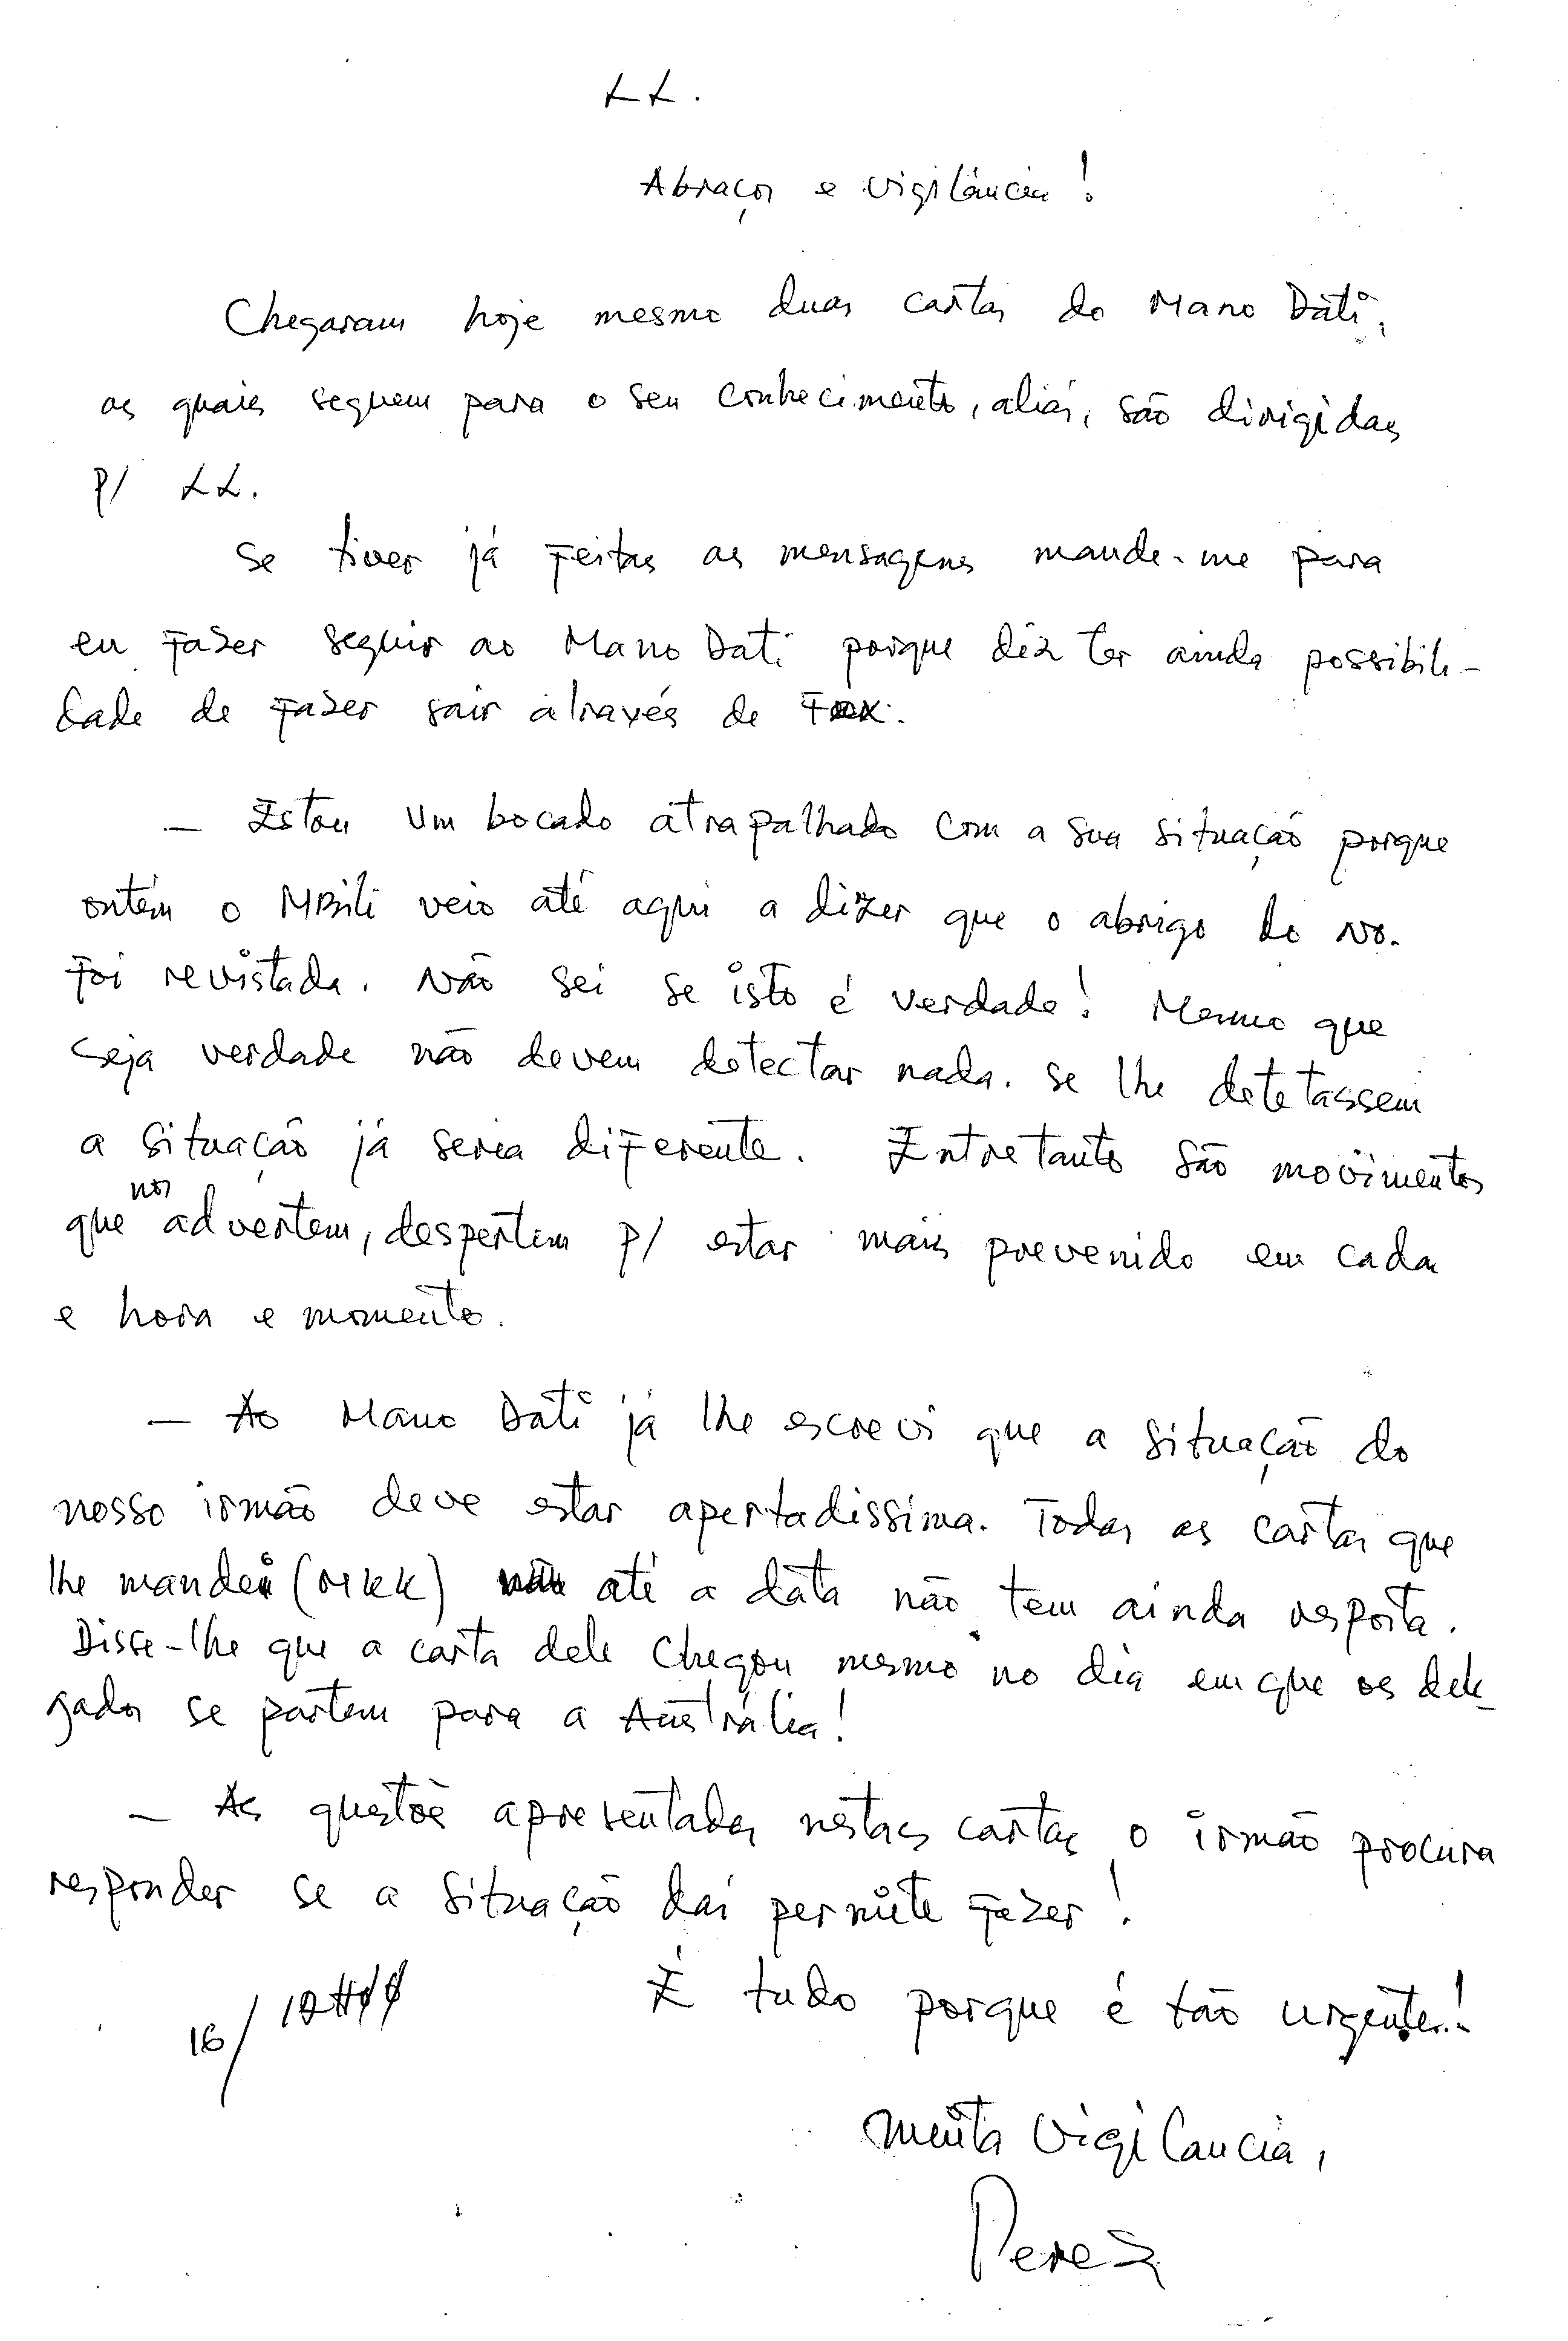 LL.
Abraços e vigilância!
Chegaram hoje mesmo duas cartas do Mano Dati,
as quais seguem para o seu conhecimento, aliás, são dirigidas
p/ LL.
Se tiver já feitas as mensagens mande-me para
eu fazer seguir ao Mano Dati porque diz ter ainda possibili-
dade de fazer sair através de Fax.
— Estou um bocado atrapalhado com a sua situação porque
ontém o MBili veio até aqui a dizer que o abrigo do No.
foi revistada. Não sei se isto é verdade! Mesmo que
seja verdade não devem detectar nada. Se lhe detetassem
a situação já seria diferente. Entretanto são movimentos
que nos advertem, despertem p/ estar mais prevenido em cada
e hora e momento.
— Ao Mano Dati já lhe escrevi que a situação do
nosso irmão deve estar apertadissima. Todas as cartas que
lhe mandei (MKK) até a data não tem ainda resposta.
Disse-lhe que a carta dele chegou mesmo no dia em que os dele-
gados se partem para a Austrália!
— As questõe apresentadas nestas cartas o irmão procura
responder se a situação daí permite fazer!
É tudo porque é tão urgente..!
16/12
Muita Vigilancia,
Perez